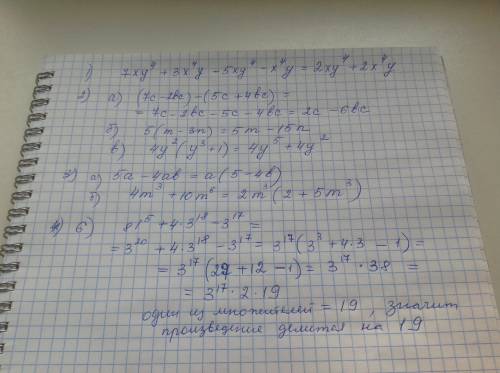 1) 7xy⁴ + 3x⁴y - 5xy⁴ - x⁴y = 2xy⁴ + 2x⁴y
2) а) (7c - 2bc) - (5c + 4bc) =
= 7c - 2bc - 5c - 4bc = 2c - 6bc
б) 5(m - 3n) = 5m - 15n
в) 4y²(y³ + 1) = 4y⁵ + 4y²
3) а) 5a - 4ab = a(5 - 4b)
б) 4m³ + 10m⁶ = 2m³(2 + 5m³)
4) б) 81⁵ + 4·3¹⁸ - 3¹⁷ =
= 3²⁰ + 4·3¹⁸ - 3¹⁷ = 3¹⁷(3³ + 4·3 - 1) =
= 3¹⁷(27 + 12 - 1) = 3¹⁷·38 =
= 3¹⁷·2·19
один из множителей = 19, значит
произведение делится на 19